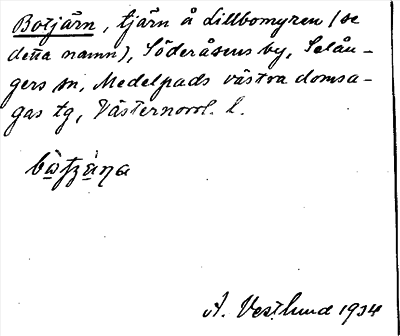 Botjärn, tjärn å Lillbomyren (se
detta namn), Söderåsens by, Selån-
gers sn, Medelpads västra domsa-
gas tg, Västernorrl. l.
A. Vestlund 1934